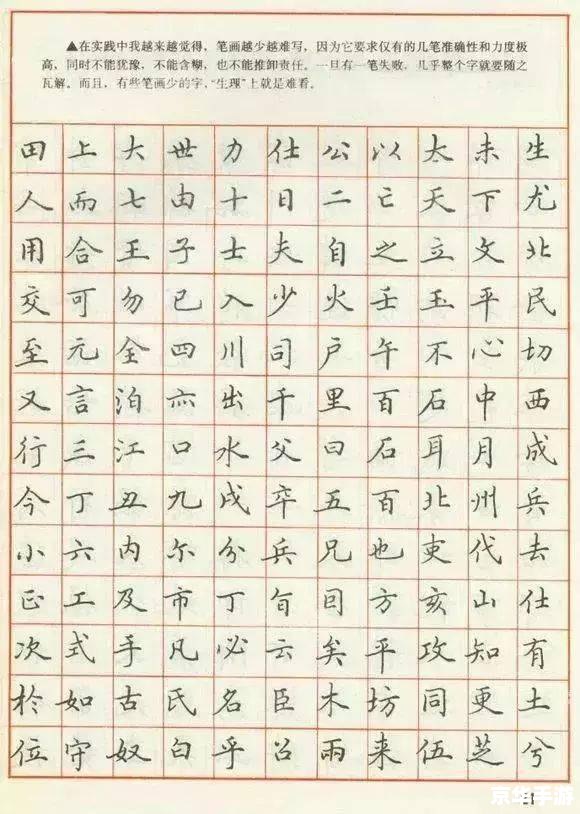 ▲在实践中我越来越觉得，笔画越少越难写，因为它要求仅有的几笔准确性和力度极
高，同时不能犹豫，不能含糊，也不能推卸责任。一旦有一笔失败，几乎整个字就要随之
瓦解。而且，有些笔画少的字，“生理”上就是难看。
田上大世力仕公以太未生
人而七由十日二亡天下尤
用合王子士夫自之立文北
交可勿已入少火壬玉平民
至元全四川司户午不心切
又言泊亦出千里百石中西
行三江口水父曰石耳月成
今丁丑九戌卒五百北州兵
小六内尔分兵兄也吏代去
正工及市丁旨回方亥山仕
次式手凡必云矣平攻知有
於如古氏名臣木坊同更土
位守奴白乎召雨来伍芝兮
京华手游